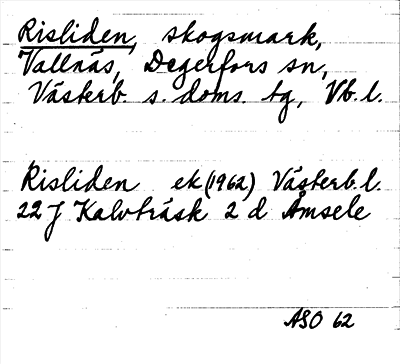 Risliden, skogsmark,
Vallnäs, Degerfors sn,
Västerb s. doms. tg, Vb. l.
Risliden ek (1962) Västerb. l.
22 J Kalvträsk 2 d Åmsele
ASO 62